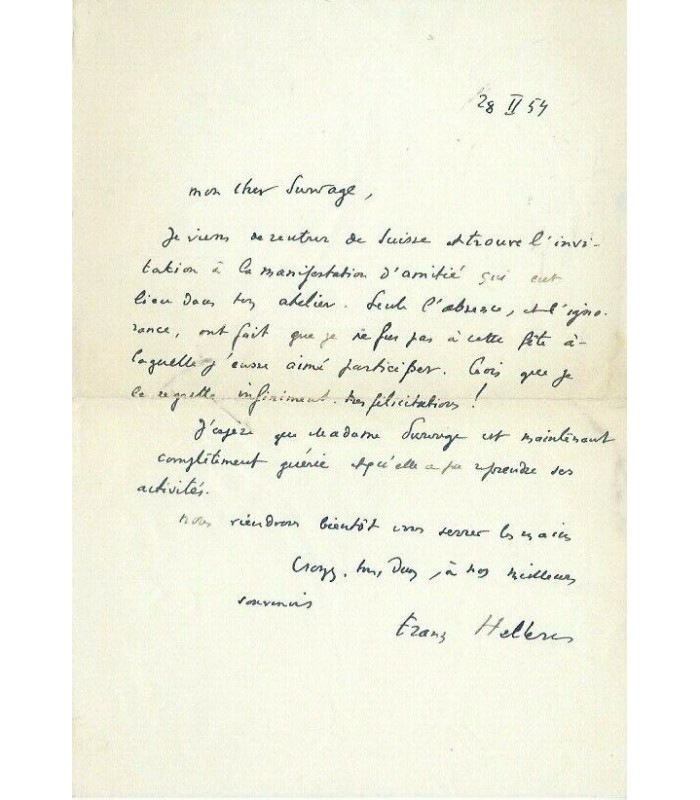 28 II 54
mon cher Survage,
Je viens de rentrer de Suisse et trouve l'invi-
tation à la manifestation d'amitié qui eut
lieu dans ton atelier. Seule l'absence, et l'igno-
rance, ont fait que je ne fus pas à cette fête à-
laquelle j'eusse aimé participer. Crois que je
le regrette infiniment. Mes félicitations !
J'espère que Madame Survage est maintenant
complètement guérie et qu'elle a pu reprendre ses
activités.
Nous viendrons bientôt vous serrer les mains
Croyez, tous deux, à nos meilleurs
souvenirs
Franz Hellens